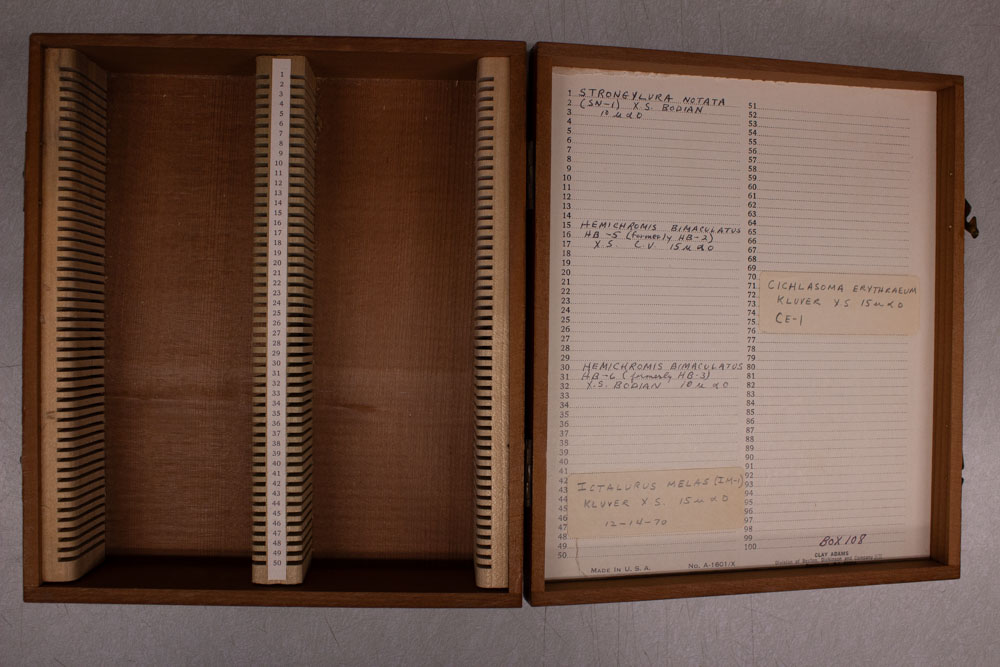 1
2
3
4
5
6
7
8
9
10
11
12
13
14
15
16
17
18
19
20
21
22
23
24
25
26
27
28
29
30
31
32
33
34
35
36
37
38
39
40
41
42
43
44
45
46
47
48
49
50
1 STRONGYLURA NOTATA
2 (SN-1) X.S. BODIAN
3 10 μ α O
4
5
6
7
8
9
10
11
12
13
14
15 HEMICHROMIS BIMACULATUS
16 HB-5 (formerly HB-2)
17 X.S. C.V. 15 μ α O
18
19
20
21
22
23
24
25
26
27
28
29
30 HEMICHROMIS BIMACULATUS
31 HB-6 (formerly HB-3)
32 X.S. BODIAN 10 μ α O
33
34
35
36
37
38
39
40
41
42 ICTALURUS MELAS (IM-1)
43
44 KLUVER X.S. 15 μ α O
45
46 12-14-70
47
48
49
50
MADE IN U.S.A. No. A-1601/X
51
52
53
54
55
56
57
58
59
60
61
62
63
64
65
66
67
68
69
70
71 CICHLASOMA ERYTHRAEUM
72 KLUVER XS 15 μ α O
73
74
75 CE-1
76
77
78
79
80
81
82
83
84
85
86
87
88
89
90
91
92
93
94
95
96
97
98
99
100 BOX 108
CLAY ADAMS
Division of Becton, Dickinson and Company